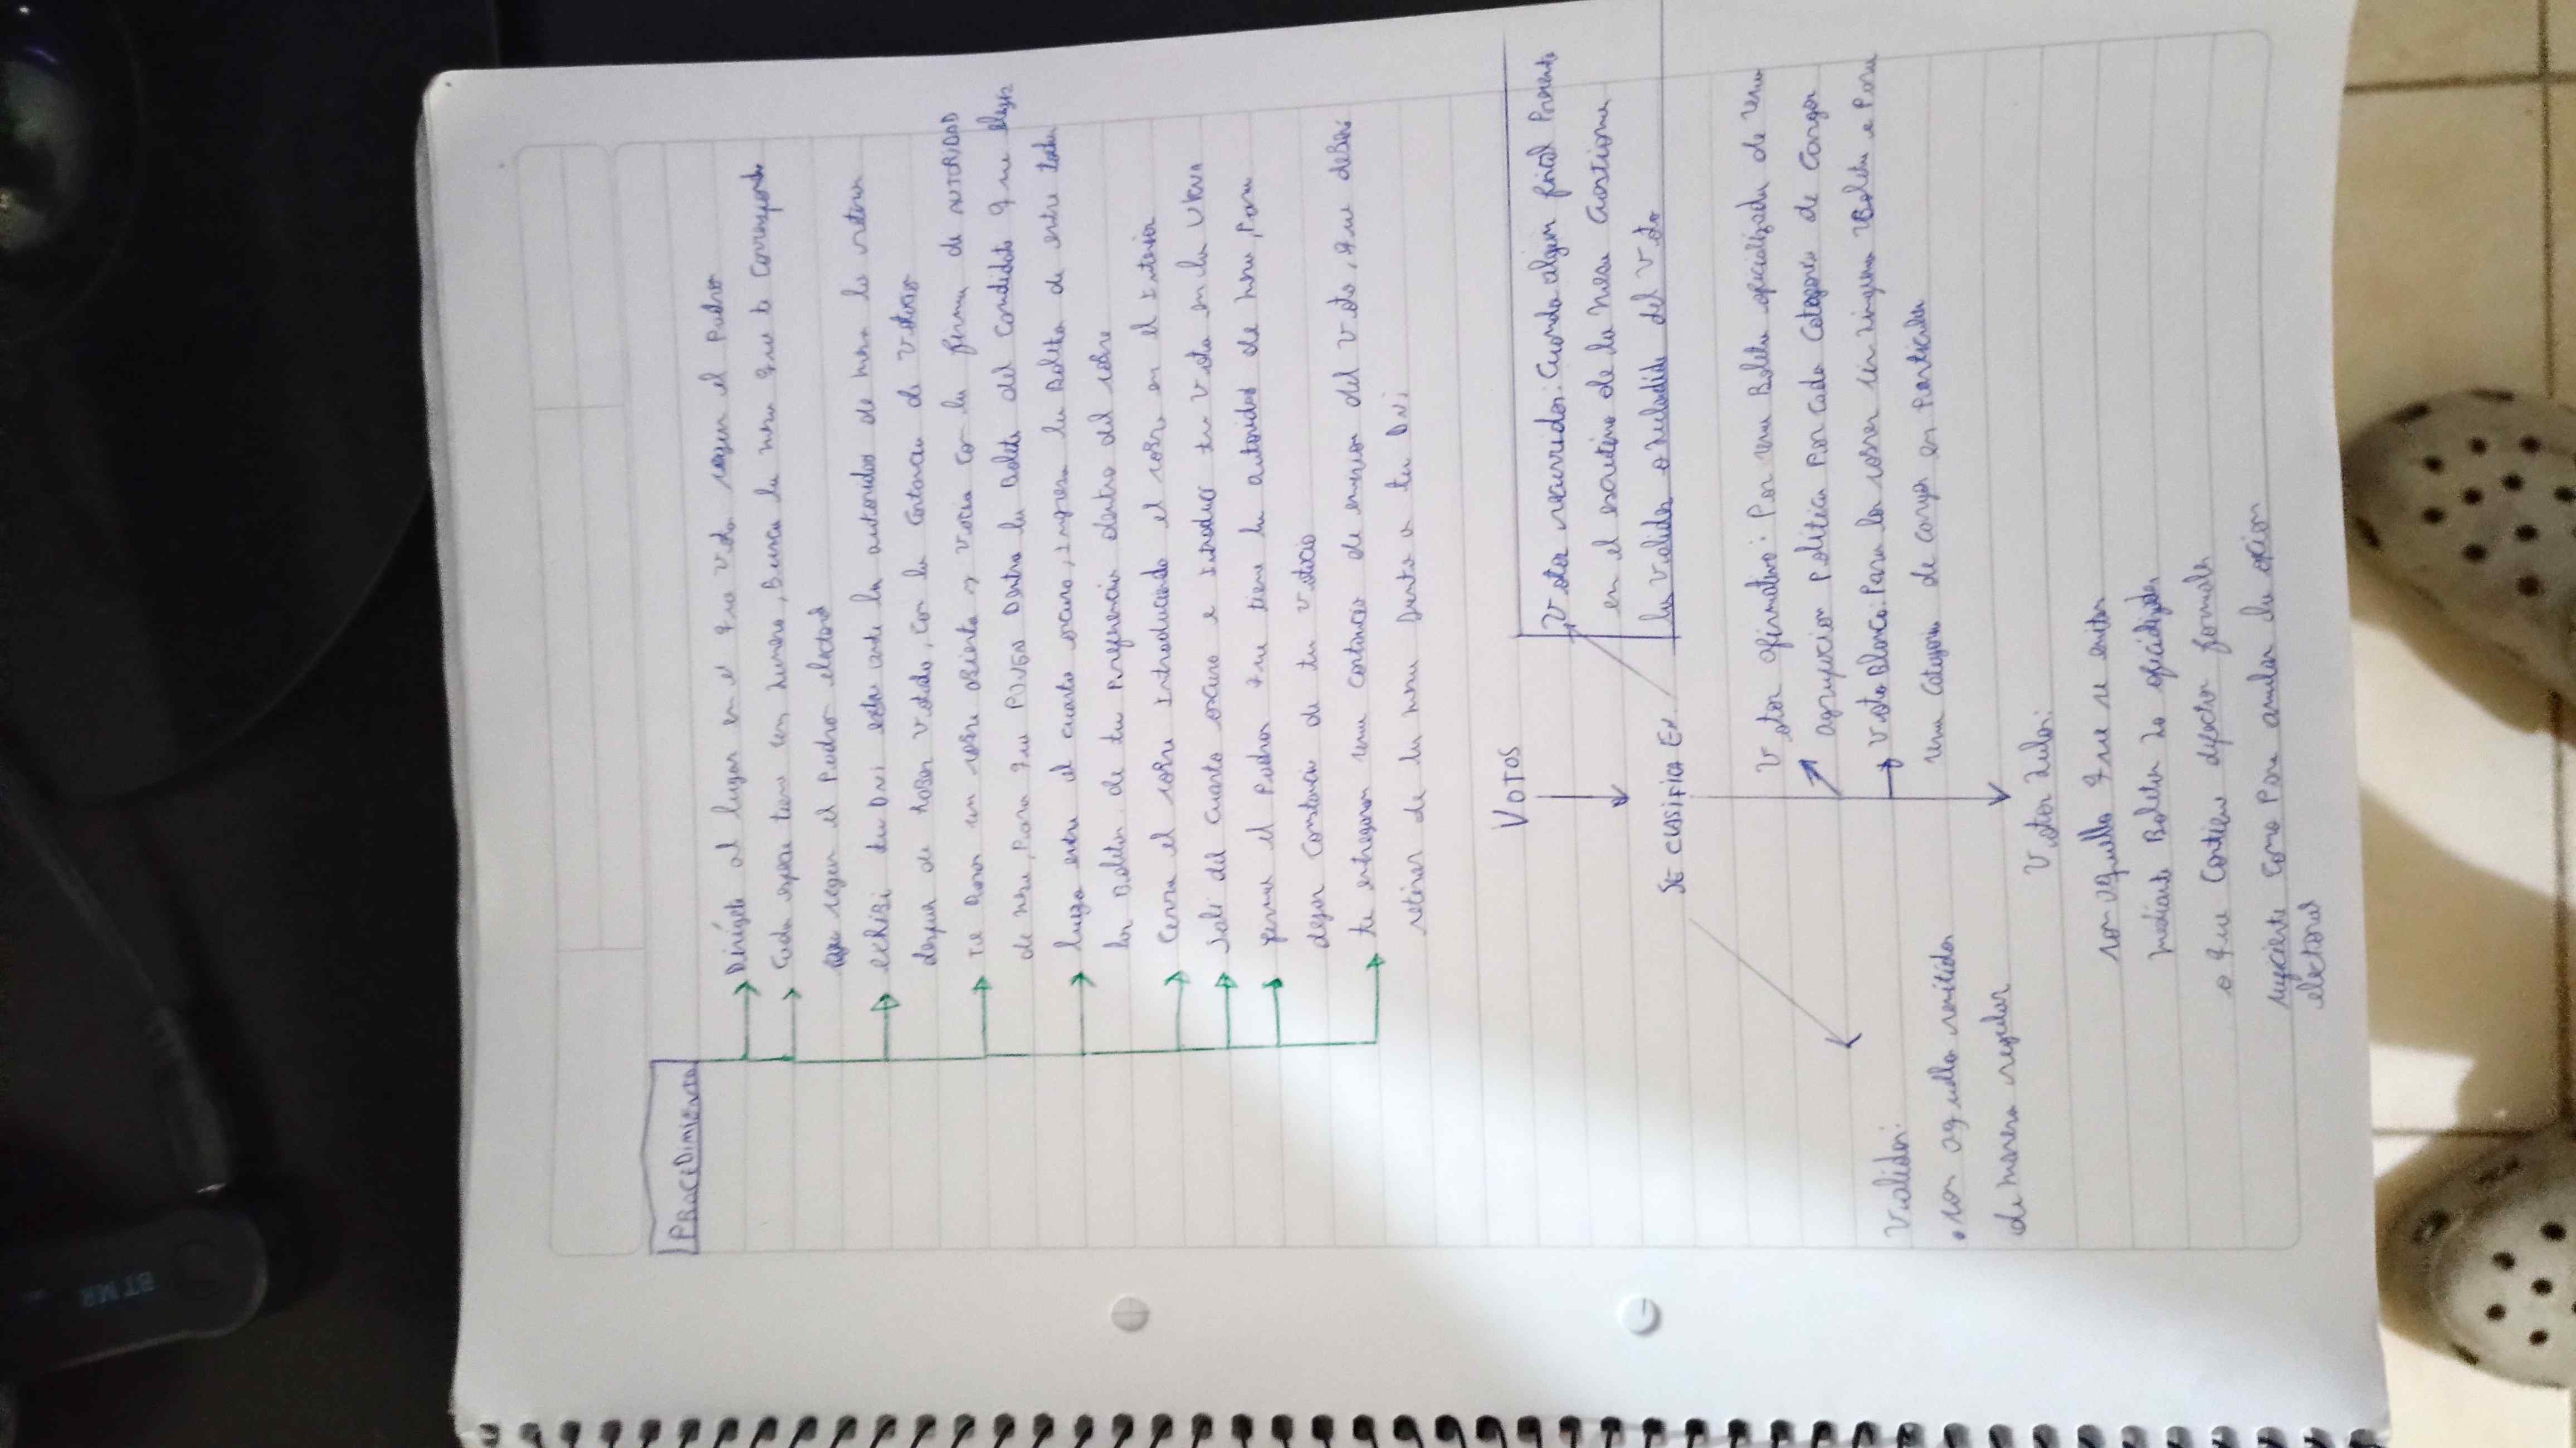 PROCEDIMIENTO
Dirígete al lugar en el que votas según el Padron
Cada espacio tiene un numero, Busca la mesa que te Corresponde
segun el Padron electoral
exhibi tu Dni este ante la autoridad de mesa lo retien
despues de haber votado, con la constancia de votacion
Te daran un sobre abierto y vacio con la firma de AUTORIDAD
de mesa, Para que PONGAS Dentro la Boleta del candidato que elegis
luego entra al cuarto oscuro, ingresa la Boleta de entre todas
las Boletas de tu Preferencia dentro del sobre
Cerra el sobre introduciendo el sobre en el interior
Sali del cuarto oscuro e introduci tu voto en la URNA
firma el Padron que tiene la autoridad de mesa, Para
dejar Constancia de tu votacio
te entregaran una constancia de emision del voto, que deberá
retirar de la mesa Junto a tu DNI
VOTOS
Votos recurridos: Cuando algun fiscal Presente
en el escrutinio de la mesa Cuestiona
la validez o nulidad del voto
SE CLASIFICA En
Votos afirmativos: Por una Boleta oficializada de una
agrupacion Politica Por cada Categoria de Cargos
voto Blanco: Para los sobres sin ninguna Boleta o Para
una Categoria de cargos en Particular
Validos:
. son aquellos emitidos
de manera regular
Votos nulos:
son aquellos que se emiten
mediante Boletas no oficializadas
o que contiene defectos formales
suficiente como Para anular la opcion
electoral
BTMR